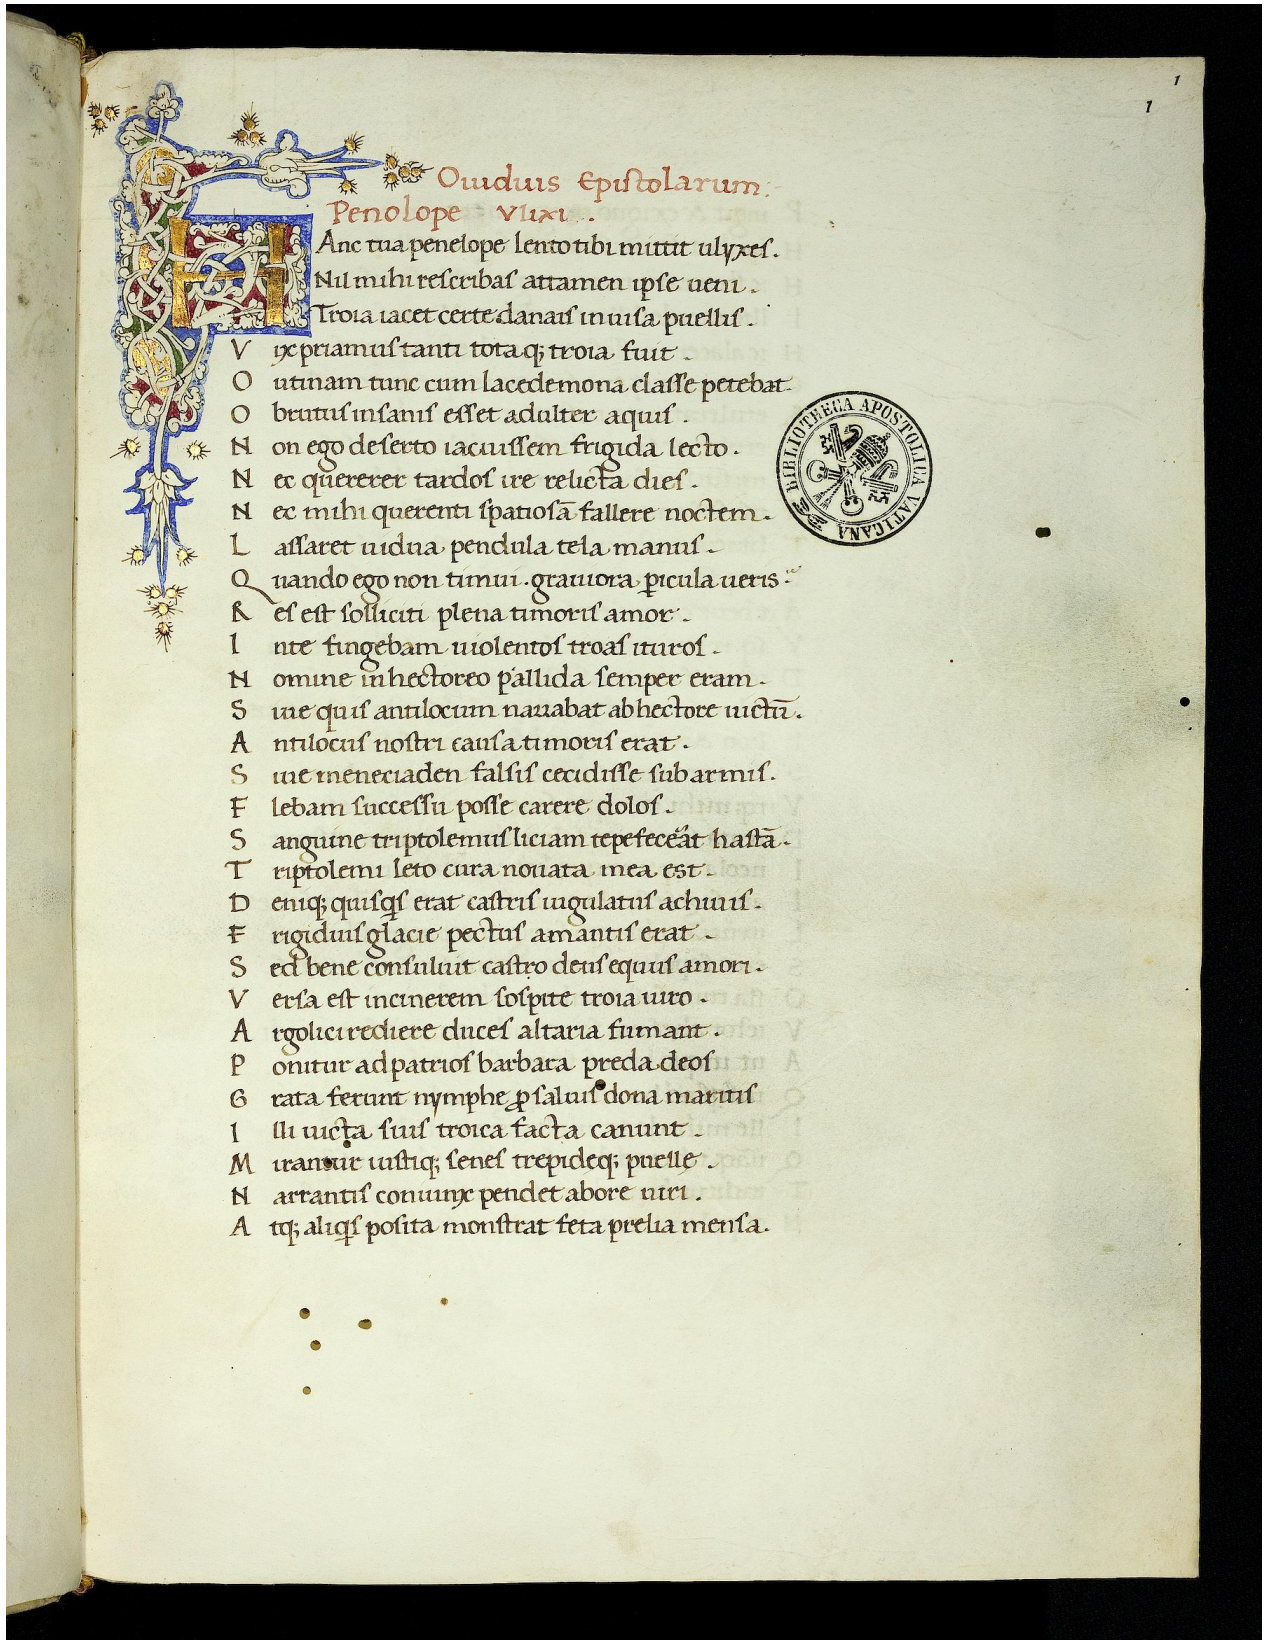 1
1
Ouidius Epistolarum.
Penolope Vlixi .
HAnc tua penelope lento tibi mittit ulyxes.
Nil mihi rescribas attamen ipse ueni.
Troia iacet certe danais inuisa puellis.
Vix priamus tanti totaq; troia fuit.
O utinam tunc cum lacedemona classe petebat.
Obrutus insanis esset adulter aquis.
Non ego deserto iacuissem frigida lecto.
Nec quererer tardos ire relicta dies.
Nec mihi querenti spatiosā fallere noctem.
Lassaret uidua pendula tela manus.
Quando ego non timui . grauiora ꝑicula ueris.
Res est solliciti plena timoris amor.
In te fingebam uiolentos troas ituros.
Nomine in hectoreo pallida semper eram.
Siue quis antilocum narrabat ab hectore uictū.
Antilocus nostri causa timoris erat.
Siue meneciaden falsis cecidisse sub armis.
Flebam successu posse carere dolos.
Sanguine triptolemus liciam tepefecerat hastā.
Triptolemi leto cura nouata mea est.
Deniq; quisq̇s erat castris iugulatus achiuis.
Frigidius glacie pectus amantis erat.
Sed bene consuluit castro deus equus amori.
Versa est in cinerem sospite troia uiro.
Argolici rediere duces altaria fumant.
Ponitur ad patrios barbara preda deos
Grata ferunt nymphe ꝓ saluis dona maritis
Illi uicta suis troica facta canunt.
Mirantur iustiq; senes trepideq; puelle.
Narrantis coniunx pendet ab ore uiri.
Atq; aliq̇s posita monstrat feta prelia mensa.
BIBLIOTHECA APOSTOLICA VATICANA